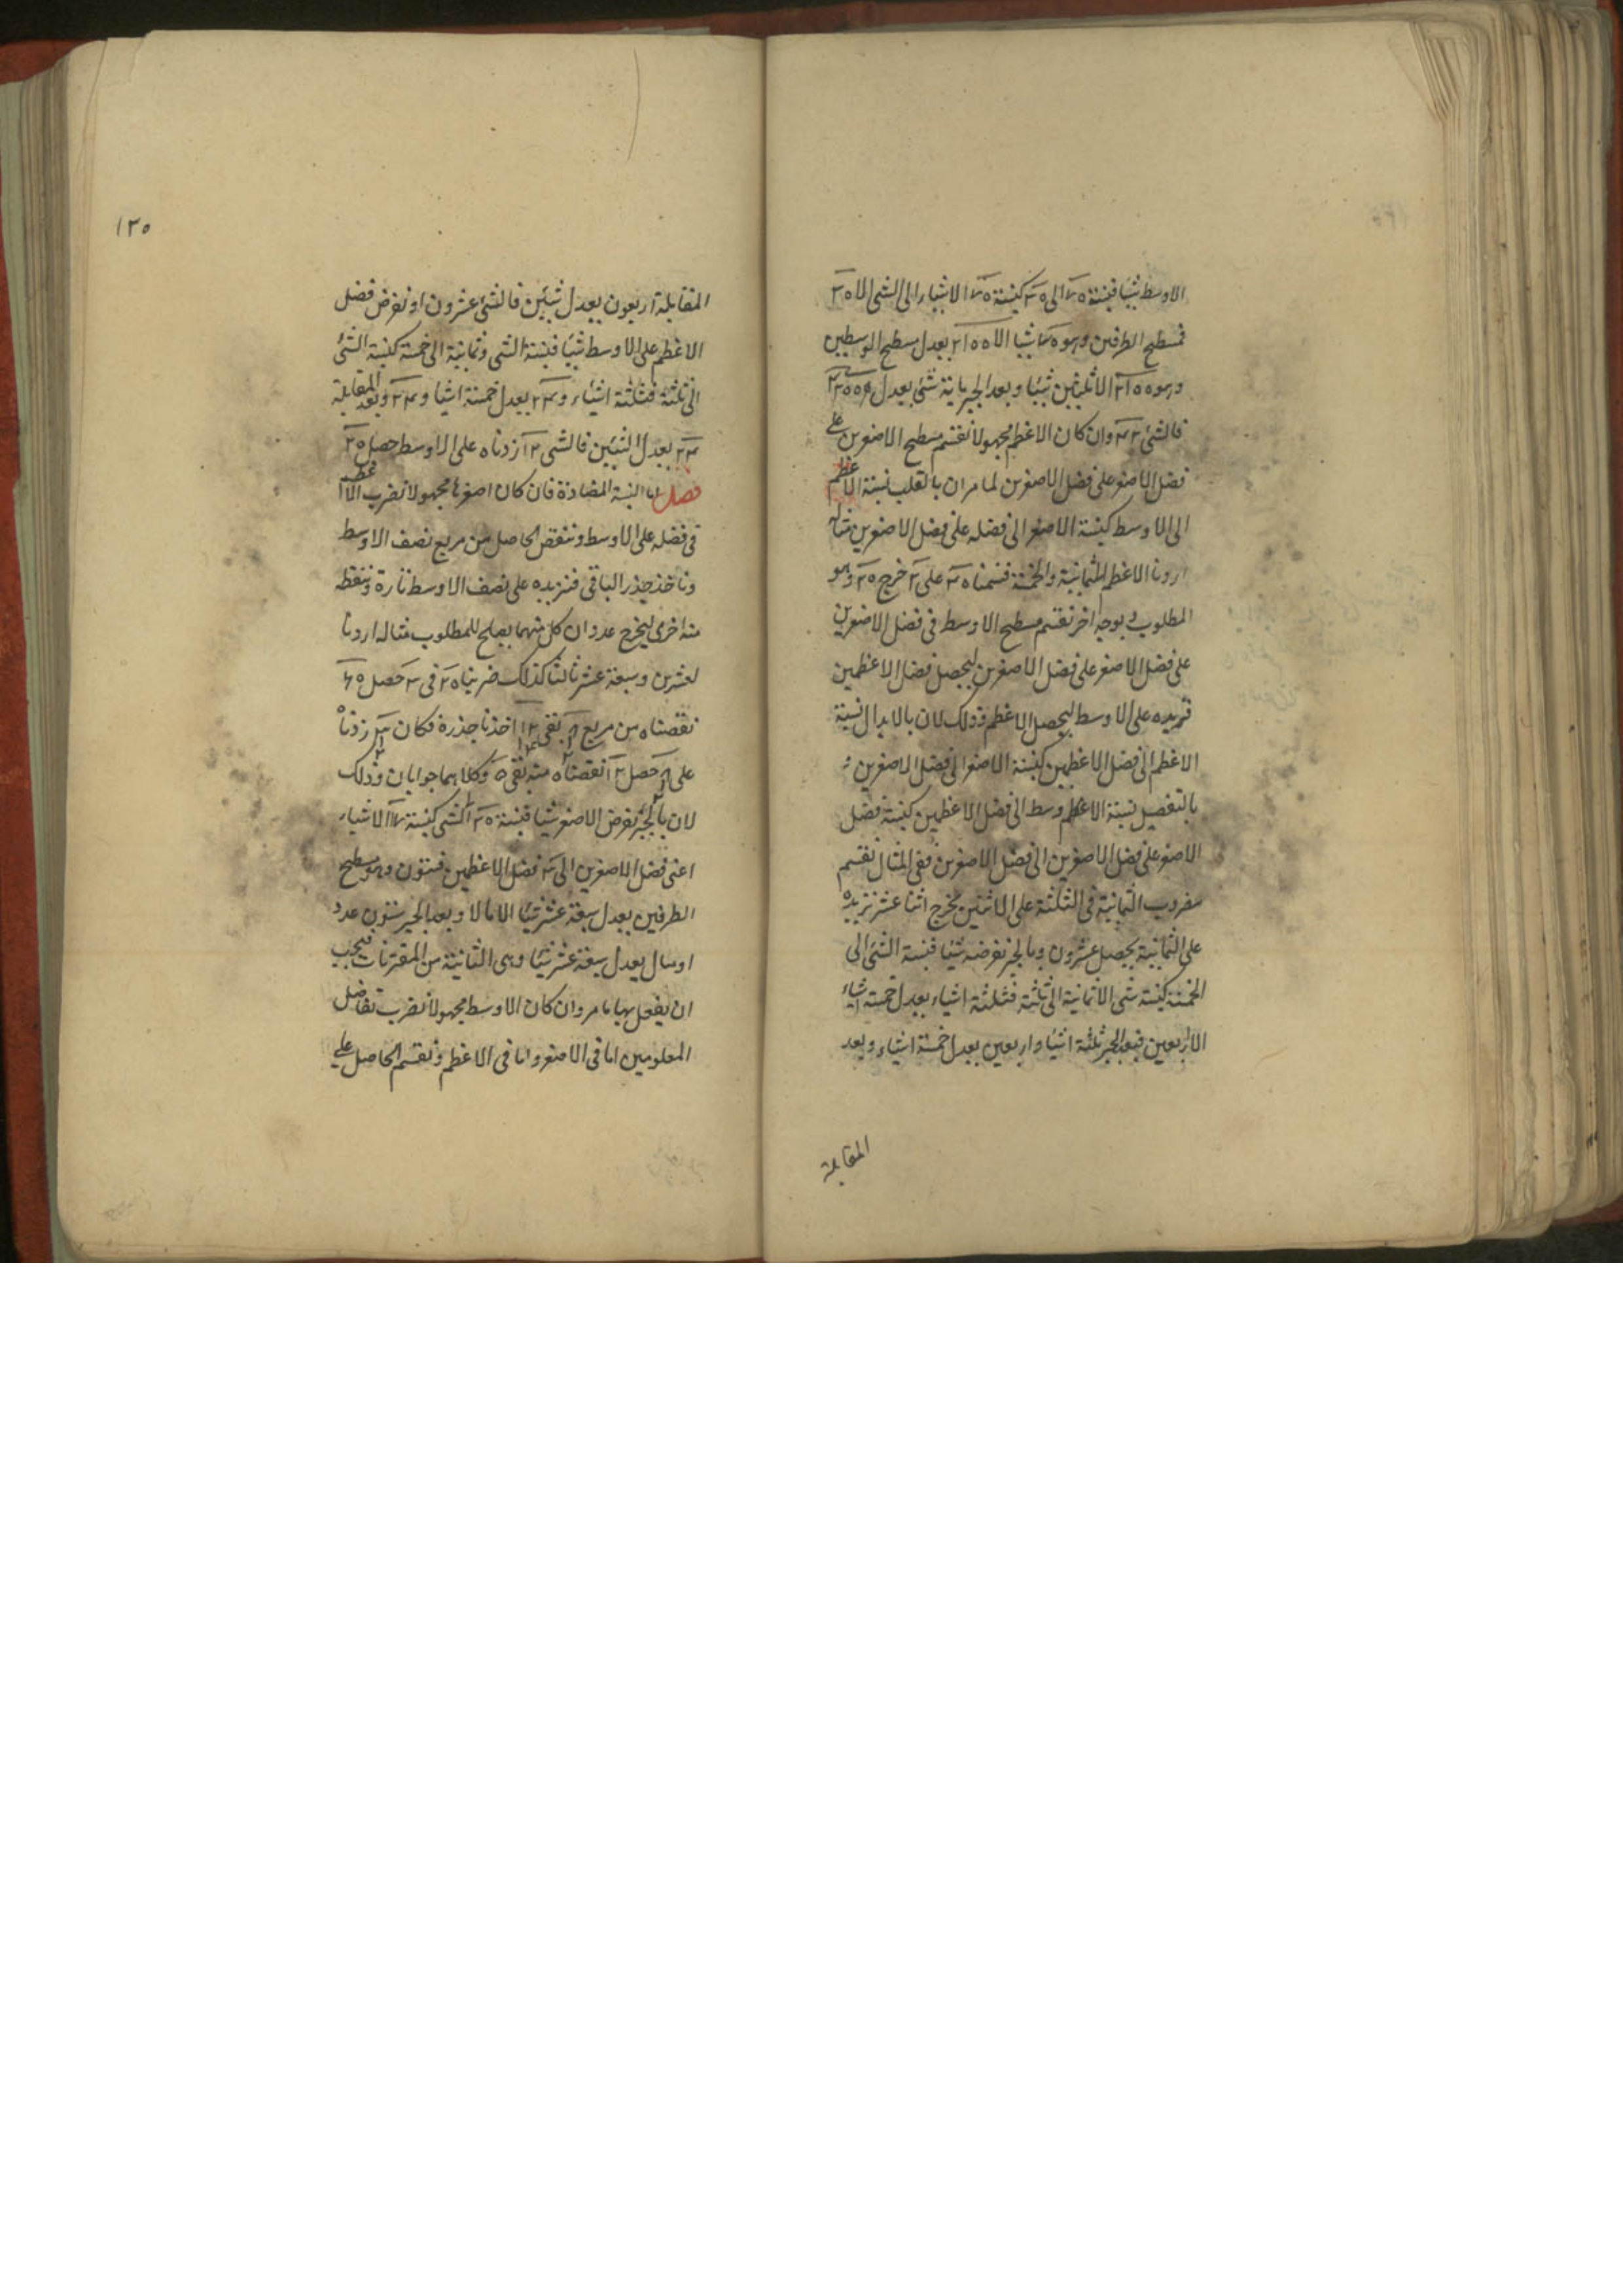 الاوسط شيئا فنسبة ٧٥ الى ٣٥ كنسبة ٧٥ الا شياء الى الشى الا ٣٥
فمسطح الطرفين وهو ٧٥ شيئا الا ٢١٥٥ يعدل مسطح الوسطين
وهو ٢١٥٥ الا ثلثين شيئا وبعد الجبر ماية شئ يعدل
فالشئ وان كان الاعظم مجهولا نقسم مسطح الاصغرين على
فضل الاصغر على فضل الاصغرين لما مر ان بالقلب نسبة الاعظم
الى الاوسط كنسبة الاصغر الى فضله على فضل الاصغرين مثاله
اردنا الاعظم للثمانية والخمسة قسمنا ٤٠ على ٢ خرج ٢٠ وهو
المطلوب وبوجه اخر نقسم مسطح الاوسط فى فضل الاصغرين
على فضل الاصغر على فضل الاصغرين ليحصل فضل الاعظمين
فنزيده على الاوسط ليحصل الاعظم وذلك لان بالابدال نسبة
الاعظم الى فضل الاعظمين كنسبة الاصغر الى فضل الاصغرين
بالتفصيل نسبة الاوسط الى فضل الاعظمين كنسبة فضل
الاصغر على فضل الاصغرين الى فضل الاصغرين ففى المثال نقسم
مضروب الثمانية فى الثلثة على الاثنين يخرج اثنا عشر نزيده
على الثمانية يحصل عشرون وبالجبر نفرضه شيئا فنسبة الشئ الى
الخمسة كنسبة شئ الا ثمانية الى ثلثة فثلثة اشياء يعدل خمسة اشياء
الا اربعين فبعد الجبر ثلثة اشيا واربعين يعدل خمسة اشياء وبعد
المقابلة
١٢٥
المقابلة اربعون يعدل شيئين فالشئ عشرون او نفرض فضل
الاعظم على الاوسط شيئا فنسبة الشئ وثمانية الى خمسة كنسبة الشئ
الى ثلثة فثلثة اشياء و٢٤ يعدل خمسة اشيا وبعد المقابلة
٢٤ يعدل الشيئين فالشئ ١٢ زدناه على الاوسط حصل ٢٠
فصل اما النسبة المضادة فان كان اصغرها مجهولا نضرب الاعظم
فى فضله على الاوسط وننقص الحاصل من مربع نصف الاوسط
وناخذ جذر الباقى فنزيده على نصف الاوسط تارة وننقصه
منه اخرى ليخرج عددان كل منهما يصلح للمطلوب مثاله اردنا
لعشرين وسبعة عشر ثالثا كذلك ضربنا ٢٠ فى ٣ حصل ٦٠
نقصناه من مربع ٨ بقى ١٢ اخذنا جذره فكان ٣ زدناه
على ٨ حصل ١٢ نقصناه منه بقى ٥ وكلاهما جوابان وذلك
لان بالجبر نفرض الاصغر شيئا فنسبة ٢٠ الى شى كنسبة ١٧ الا شياء
اعنى فضل الاصغرين الى ٣ فضل الاعظمين فستون وهو مسطح
الطرفين يعدل سبعة عشر شيئا الا مالا وبعد الجبر ستون عدد
او مال يعدل سبعة عشر شيئا وهى الثانية من المقترنات فيجب
ان يفعل بها ما مر وان كان الاوسط مجهولا نضرب تفاضل
المعلومين اما فى الاصغر واما فى الاعظم ونقسم الحاصل على